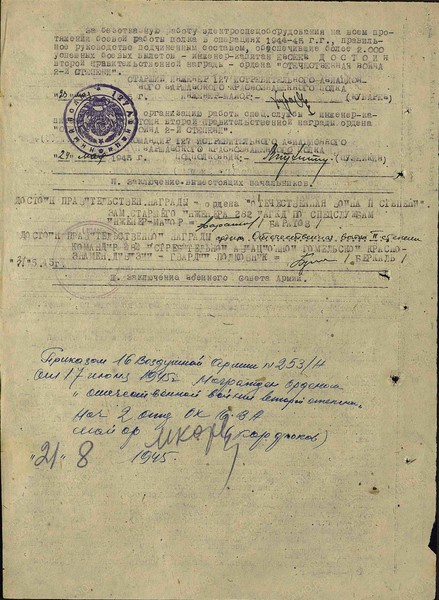 За безотказную работу электроспецоборудования на всем про-
тяжении боевой работы полка в операциях 1944-45 г.г., правиль-
ное руководство подчиненным составом, обеспечившее более 2.000
успешных боевых вылетов - инженер-капитан ДОСТОИН
второй правительственной награды - ордена "ОТЕЧЕСТВЕННАЯ ВОЙНА
2-Й СТЕПЕНИ".
СТАРШИЙ ИНЖЕНЕР 127 ИСТРЕБИТЕЛЬНОГО АВИАЦИОН-
НОГО ВАРШАВСКОГО КРАСНОЗНАМЕННОГО ПОЛКА
"23" мая 1945 г. ИНЖЕНЕР-МАЙОР:-
организации работы спецслужб инженер-ка-
питан второй правительственной награды ордена
ВОЙНА 2-Й СТЕПЕНИ".
КОМАНДИР 127 ИСТРЕБИТЕЛЬНОГО АВИАЦИОННОГО
ВАРШАВСКОГО КРАСНОЗНАМЕННОГО ПОЛКА
"24" мая 1945 г. ПОДПОЛКОВНИК:-
П. Заключение вышестоящих начальников.
ДОСТОИН ПРАВИТЕЛЬСТВЕН. НАГРАДЫ - ордена "ОТЕЧЕСТВЕННАЯ ВОЙНА II СТЕПЕНИ".
ЗАМ. СТАРШЕГО ИНЖЕНЕРА 282 ПО СПЕЦСЛУЖБАМ
ИНЖЕНЕР-МАЙОР - / БАРАТОВ /
ДОСТОИН ПРАВИТЕЛЬСТВЕННОЙ НАГРАДЫ орден Отечественная война II степени
КОМАНДИР 282 ИСТРЕБИТЕЛЬНОЙ АВИАЦИОННОЙ ГОМЕЛЬСКОЙ КРАСНО-
ЗНАМЕН. ДИВИЗИИ - ГВАРДИИ ПОЛКОВНИК = / БЕРКАЛЬ /
"31" 5.45г.
Ш. Заключение Военного Совета Армии.
Приказом 16 Воздушной Армии № 253/н
от 17 июня 1945г. Награжден Орденом
"Отечественной войны второй степени."
Нач 2 отд ОК 16 ВА
майор
"21" 8 1945.